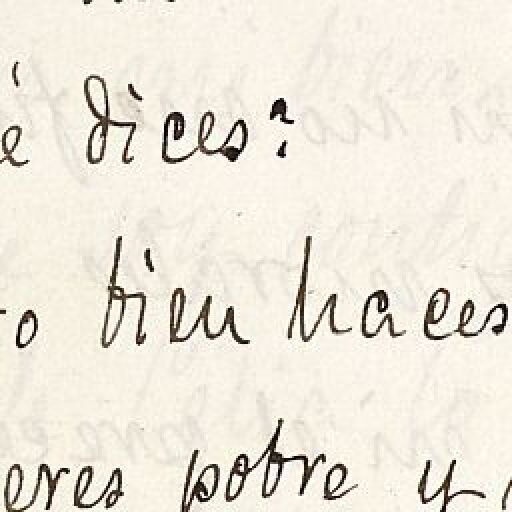 é dices?
o bien haces
eres pobre y